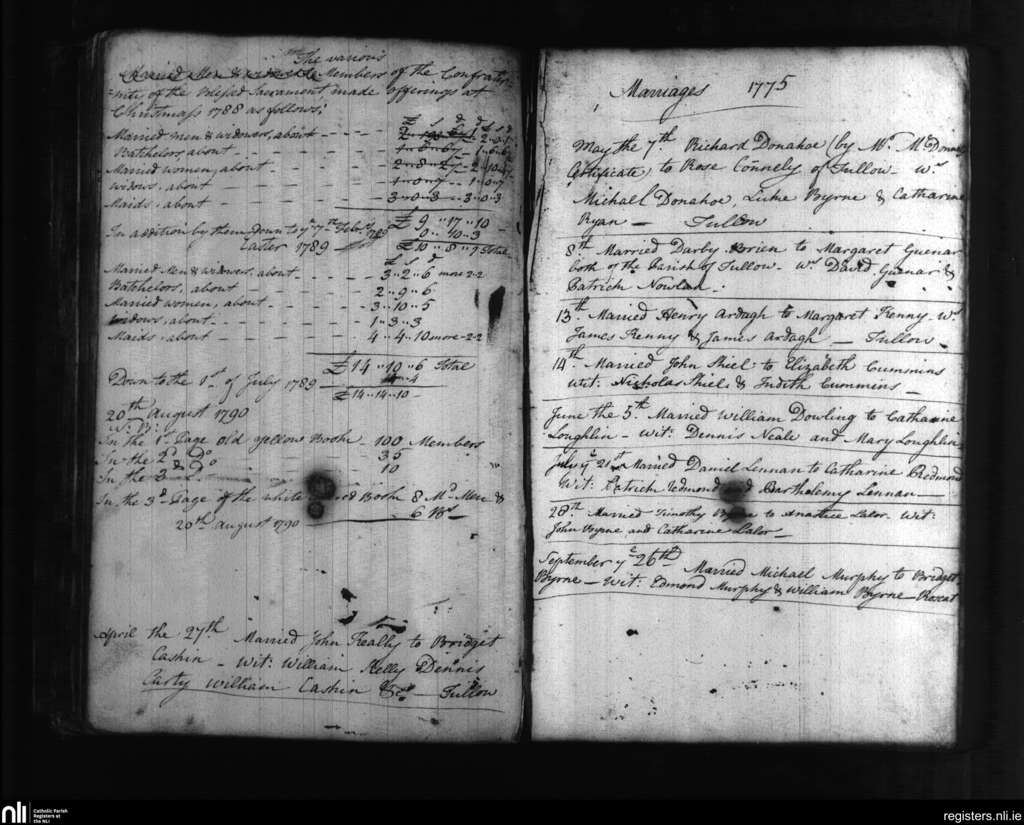 The various
Married Men & Members of the Confrater-
nity of the Blessed Sacrament made offerings at
Christmass 1788 as follows;
£ s d
Married men & widowers, about
Batchelors, about
Married women, about
widows, about
Maids, about 3..0..3
£ 9..17..10
In addition by them down to ye 7th Feby. 1789 0..10..3
£10..8..9 Total
Easter 1789
£ s d
Married Men & widowers, about 3..2..6 more 2-2
Batchelors, about 2..9..6
Married women, about 3..10..5
widows, about 1..3..3
Maids, about 4..4..10 more-2-2
£14..10..6 Total
Down to the 1st of July 1789 4..4
£14..14..10
20th August 1790
N: B:
In the 1st Page old yellow Book 100 Members
In the 2d Do 35
In the 3d Do 10
In the 3d Page of the white Book 8 Md Men &
6
20th August 1790
April the 27th Married John Kealy to Bridget
Cashin – Wit: William Kelly & Dennis
Carty William Cashin &c. – Tullow
Marriages 1775
May the 7th Richard Donahoe (by Mr.
Certificate) to Rose Connely of Tullow – Ws
Michael Donahoe, Luke Byrne & Catharine
Ryan – Tullow
8th Married Darby Brien to Margaret Guenar
both of the Parish of Tullow. Ws David Guenar &
Patrick Nowlan.
13th Married Henry Ardagh to Margaret Kenny. Ws
James Kenny & James Ardagh – Tullow
14th Married John Shiel to Elizabeth Cummins
Wit: Nicholas Shiels & Judith Cummins
June the 5th Married William Dowling to Catharine
Loughlin – Wit: Dennis Neale and Mary Loughlin
July ye 21st Married Daniel Lennan to Catharine Redmond
Wit: Patrick Redmond and Bartholemy Lennan
28th Married Timothy Byrne to Anastice Lalor. Wit:
John Byrne and Catharine Lalor
September ye 26th Married Michael Murphy to Bridget
Byrne – Wit: Edmond Murphy & William Byrne – Roscat
nli
Catholic Parish
Registers at
the NLI
registers.nli.ie